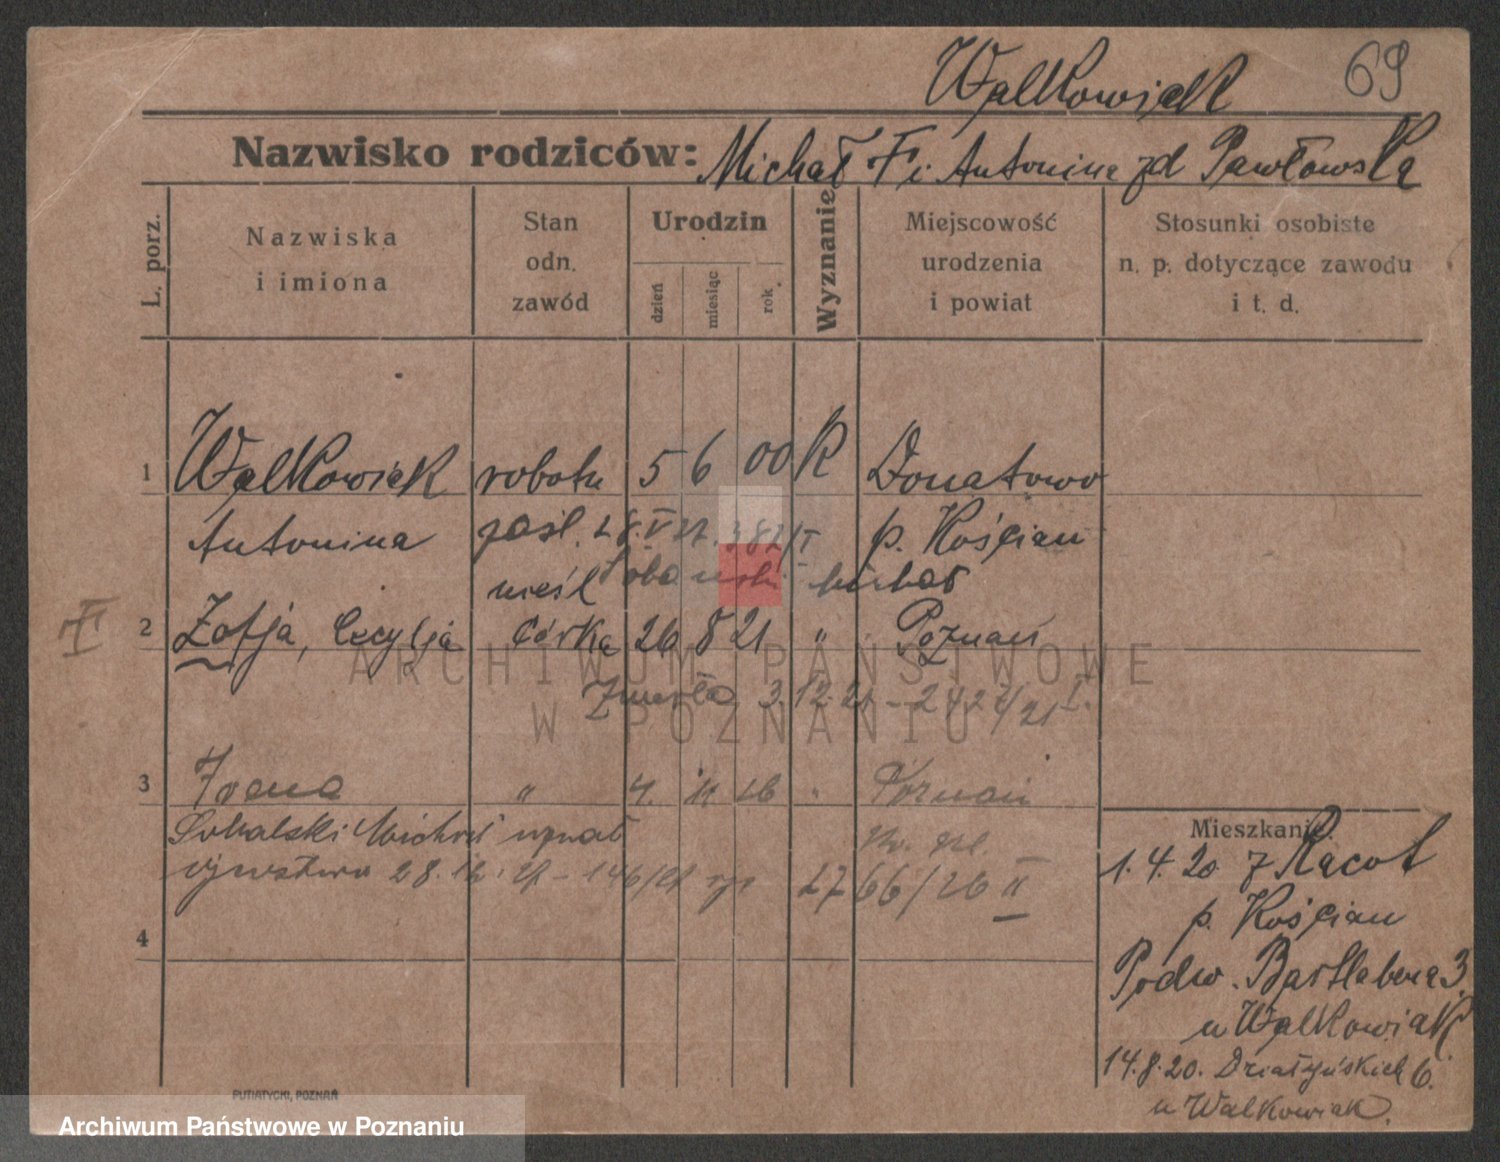 Walkowiak 69
Nazwisko rodziców: Michał i Antonina zd Pawłowska
L. porz.
Nazwiska i imiona
Stan odn. zawód
Urodzin
dzień
miesiąc
rok
Wyznanie
Miejscowość urodzenia i powiat
Stosunki osobiste n. p. dotyczące zawodu i t. d.
1 Walkowiak robotn 5 6 00 K Donatowo
Antonina zaśl. 28.V 27. 382/I p. Kościan
nieśl Michał
II 2 Zofja, Cecylja córka 26 8 21 " Poznań
Zmarła 3.12.21 - 2427/21 I.
3 " 4. 11 26 " Poznań
Michał uznał
ojcostwo 28.12.27 - 146/27 2766/26 II
4
Mieszkanie:
1.4.20 z Racot
p. Kościan
Podw. 3
u Walkowiak
14.8.20. Działyńskich 6.
u Walkowiak.
PUTIATYCKI, POZNAŃ
ARCHIWUM PAŃSTWOWE
W POZNANIU
Archiwum Państwowe w Poznaniu